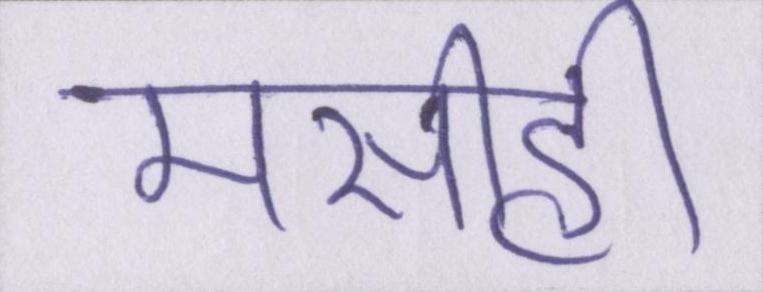 मसीही